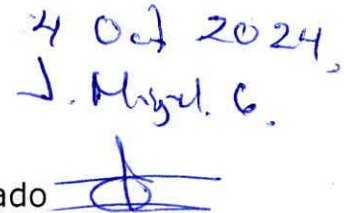 4 Oct 2024,
J. Miguel. G.
ado